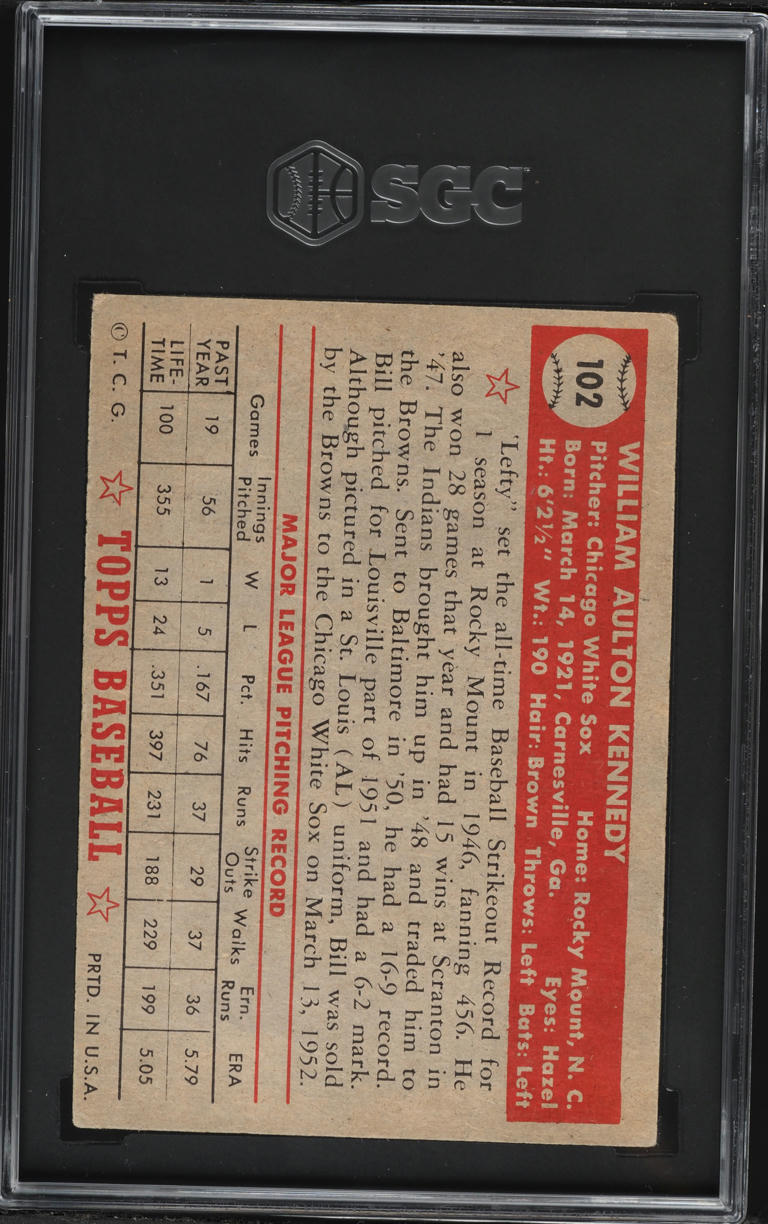 SGC
102
WILLIAM AULTON KENNEDY
Pitcher: Chicago White Sox Home: Rocky Mount, N. C.
Born: March 14, 1921, Carnesville, Ga. Eyes: Hazel
Ht.: 6'2½" Wt.: 190 Hair: Brown Throws: Left Bats: Left
'Lefty" set the all-time Baseball Strikeout Record for
1 season at Rocky Mount in 1946, fanning 456. He
also won 28 games that year and had 15 wins at Scranton in
'47. The Indians brought him up in '48 and traded him to
the Browns. Sent to Baltimore in '50, he had a 16-9 record.
Bill pitched for Louisville part of 1951 and had a 6-2 mark.
Although pictured in a St. Louis (AL) uniform, Bill was sold
by the Browns to the Chicago White Sox on March 13, 1952.
MAJOR LEAGUE PITCHING RECORD
Games Innings Pitched W L Pct. Hits Runs Strike Outs Walks Ern. Runs ERA
PAST YEAR 19 56 1 5 .167 76 37 29 37 36 5.79
LIFE-TIME 100 355 13 24 .351 397 231 188 229 199 5.05
© T. C. G. TOPPS BASEBALL PRTD. IN U.S.A.